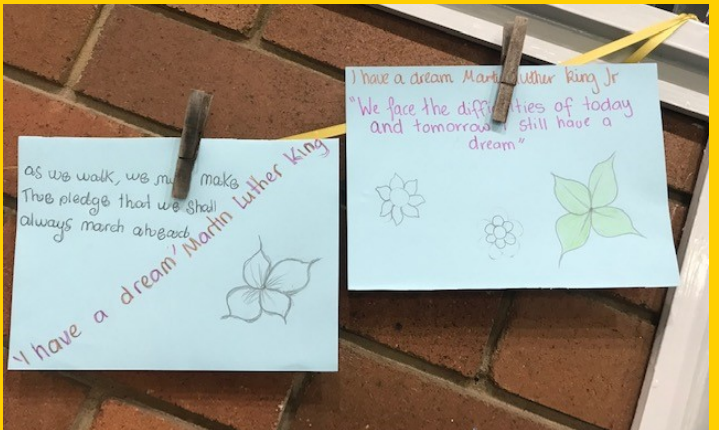 as we walk, we make
The pledge that we shall
always march ahead
"I have a dream" Martin Luther King
I have a dream Martin Luther King Jr
"We face the difficulties of today
and tomorrow I still have a
dream"